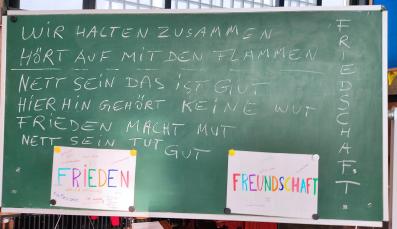 WIR HALTEN ZUSAMMEN
HÖRT AUF MIT DEN FLAMMEN
NETT SEIN DAS IST GUT
HIERHIN GEHÖRT KEINE WUT
FRIEDEN MACHT MUT
NETT SEIN TUT GUT
FRIEDSCHAFT
FRIEDEN
FREUNDSCHAFT